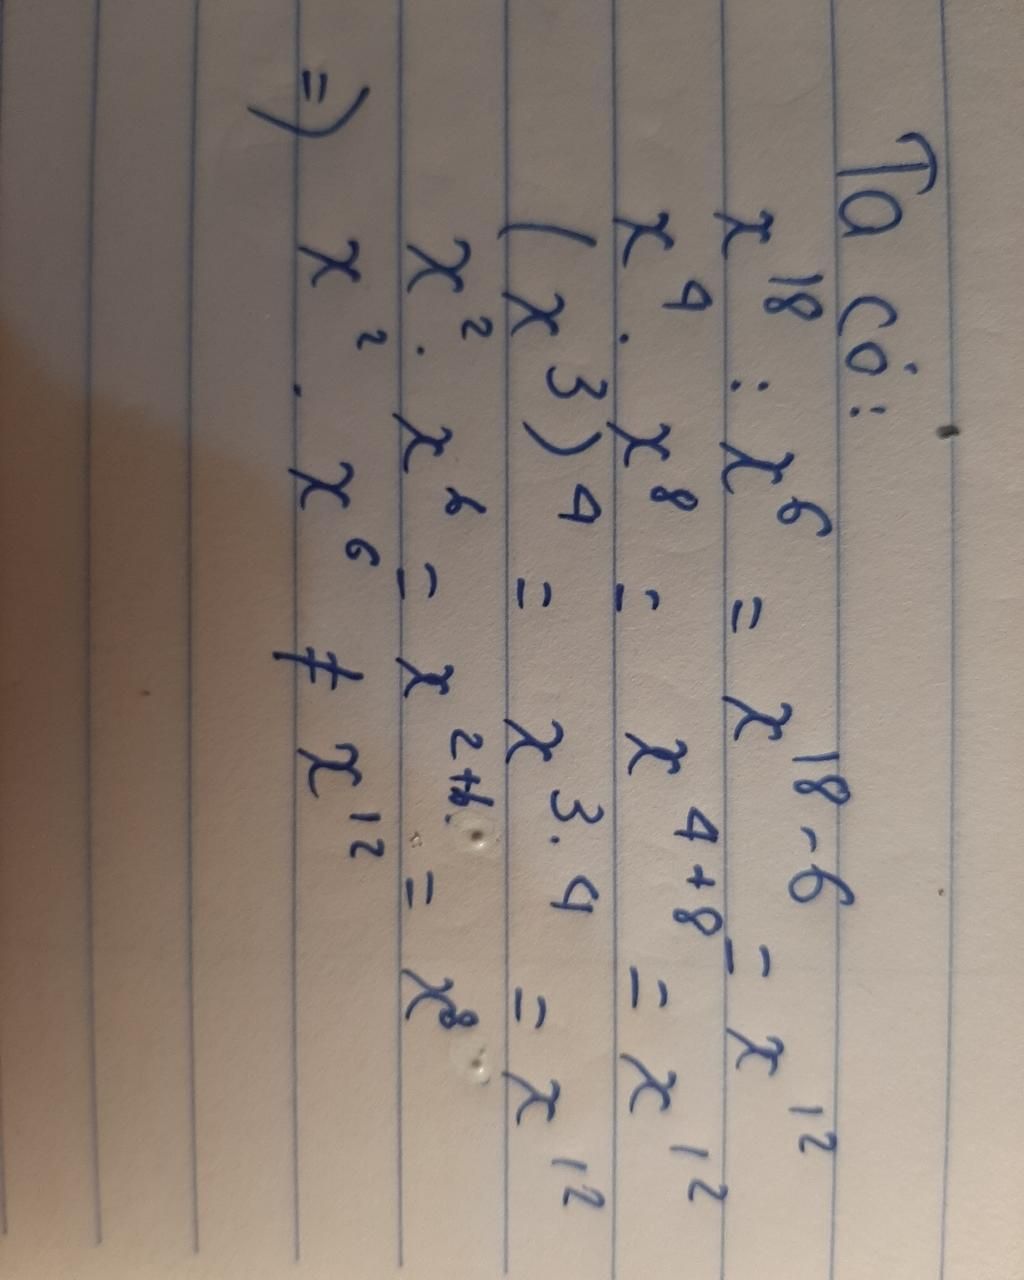 Ta có:
x¹⁸ : x⁶ = x¹⁸⁻⁶ = x¹²
x⁴ . x⁸ = x⁴⁺⁸ = x¹²
(x³)⁴ = x³·⁴ = x¹²
x² . x⁶ = x²⁺⁶ = x⁸
=) x² . x⁶ ≠ x¹²